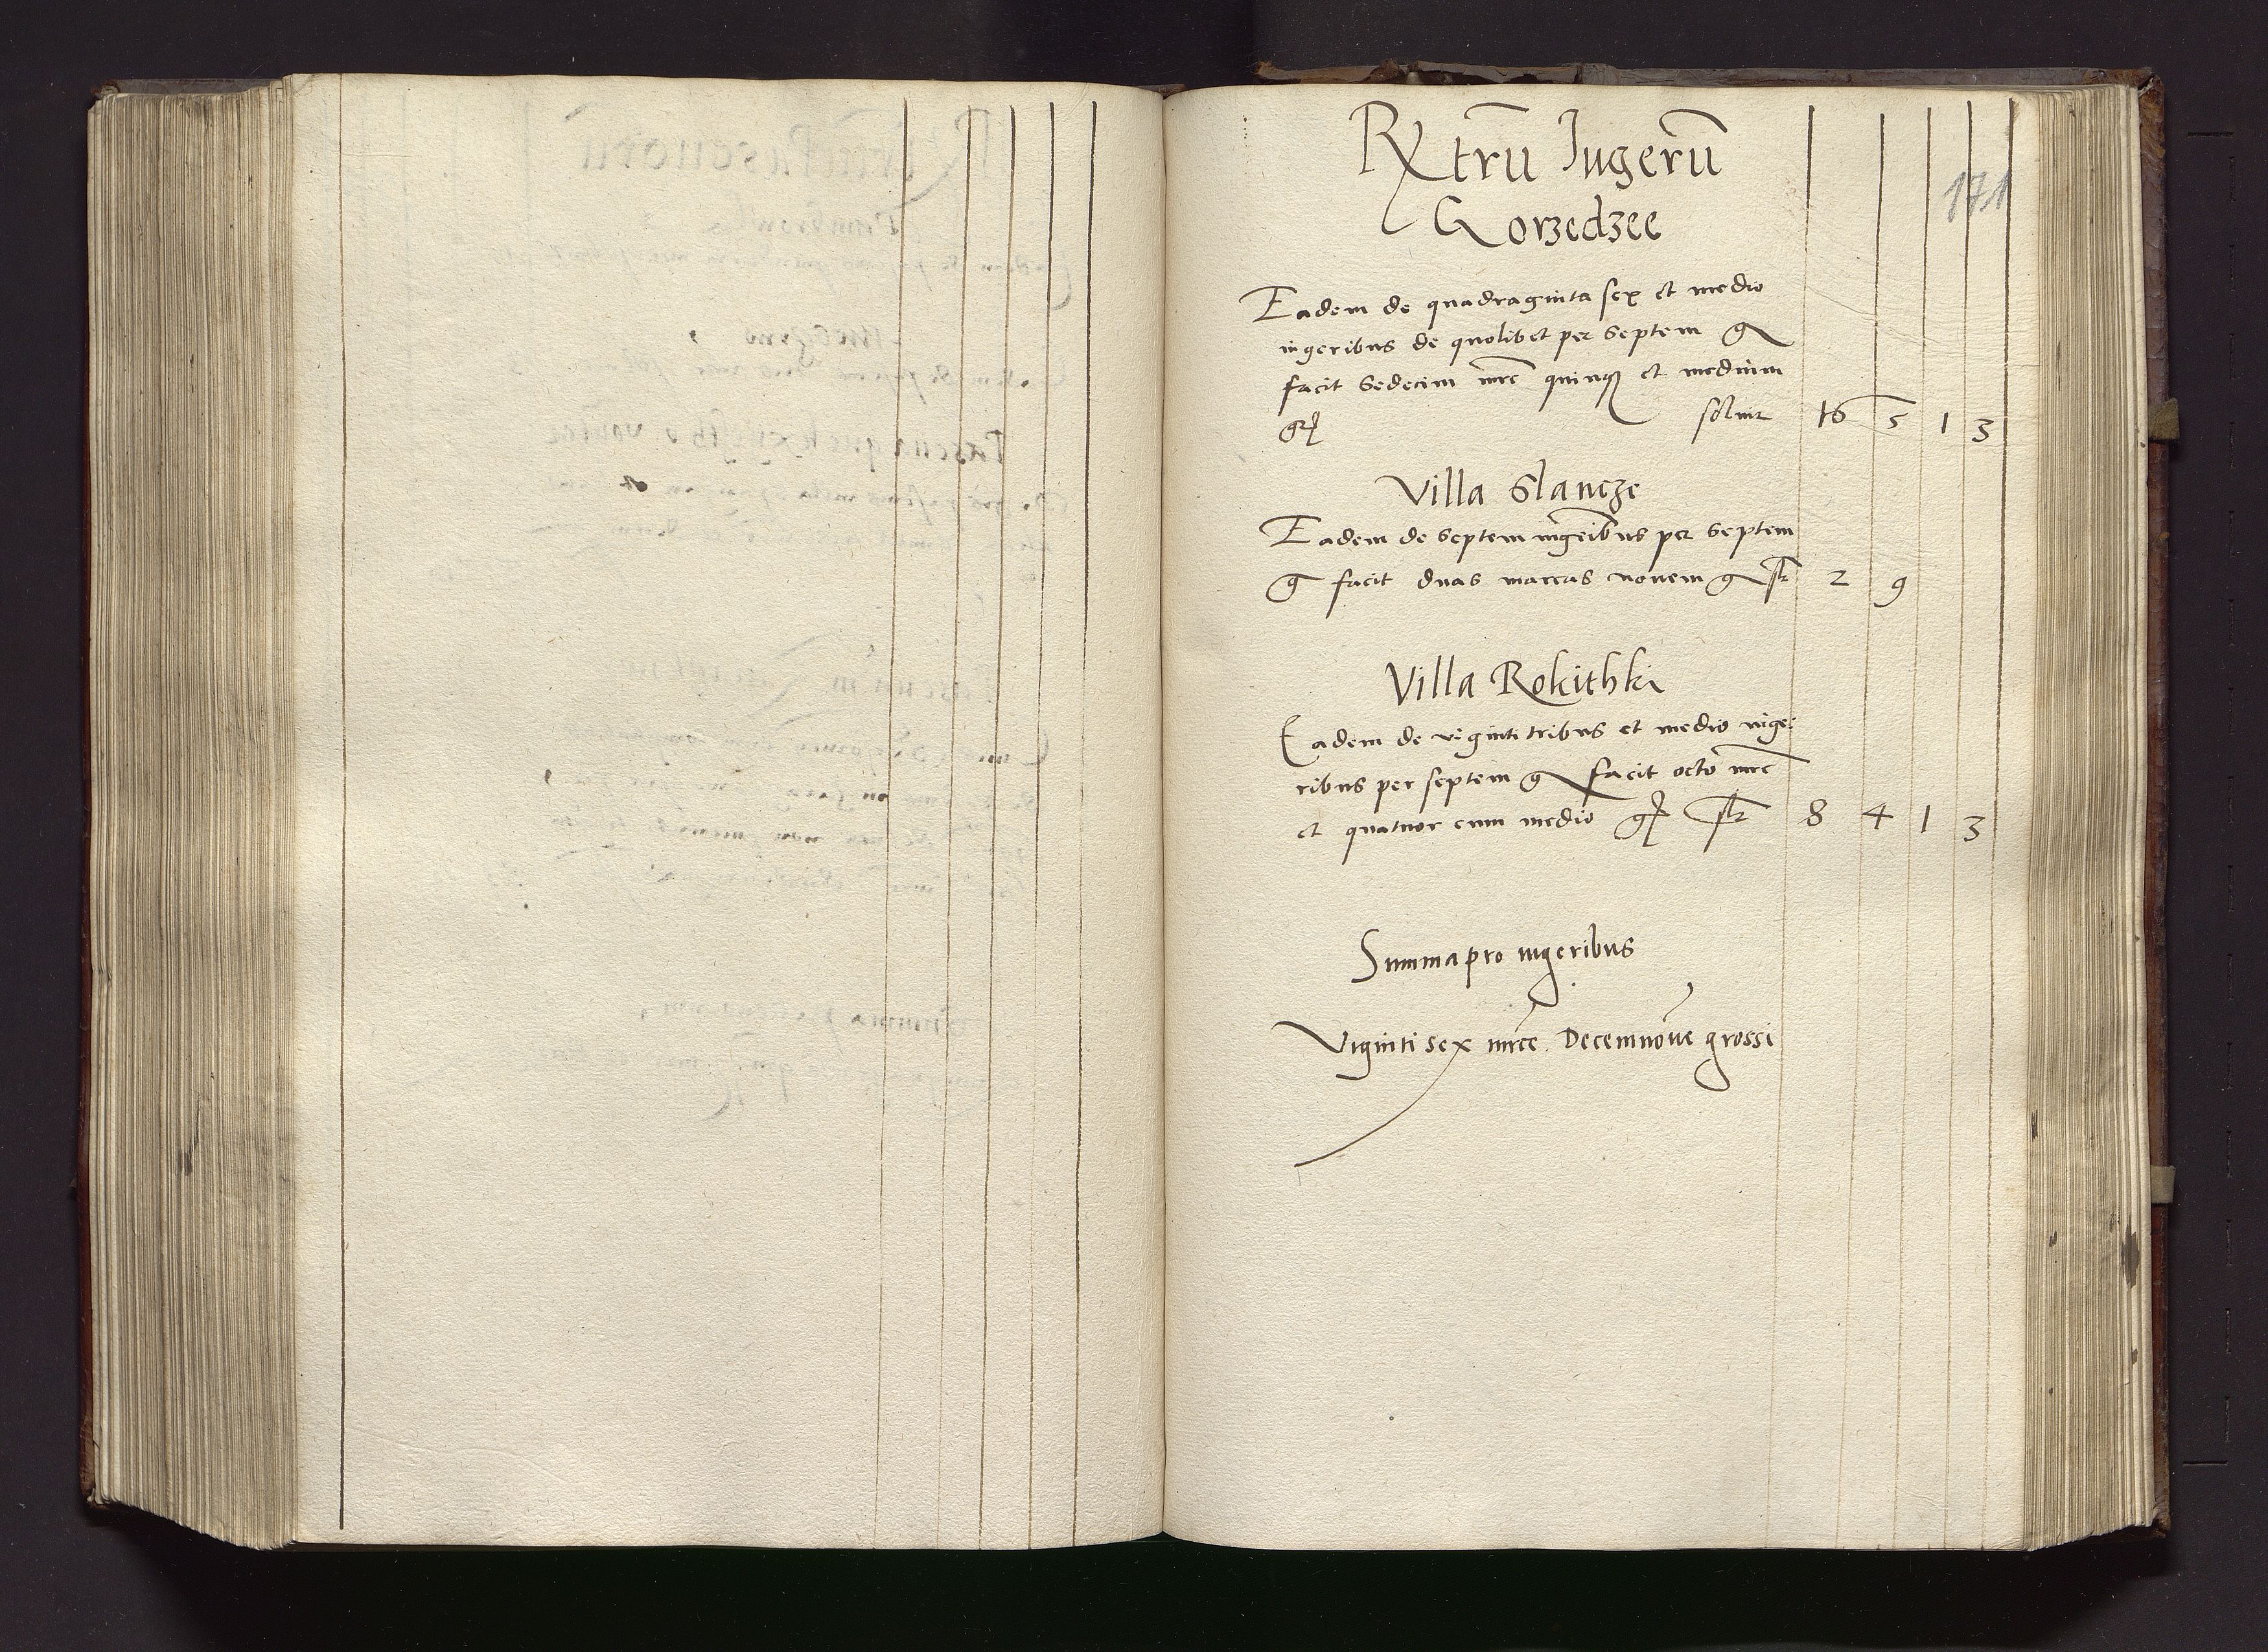 Rxtrū Jugerū
171
Gorzedzee
Eadem de quadraginta sex et medio
iugeribus de quolibet per Septem g
facit Sedecim mrc quinqz et medium
gr soluit 16 5 1 3
Villa Slancze
Eadem de Septem iugeribus per Septem
g facit duas marcas nouem g slt 2 9
Villa Rokithki
Eadem de viginti tribus et medio iuge:
ribus per septem g facit octo mrc
et quatuor cum medio gr slt 8 4 1 3
Summa pro iugeribus
Viginti sex mrce Decemnoue grossi